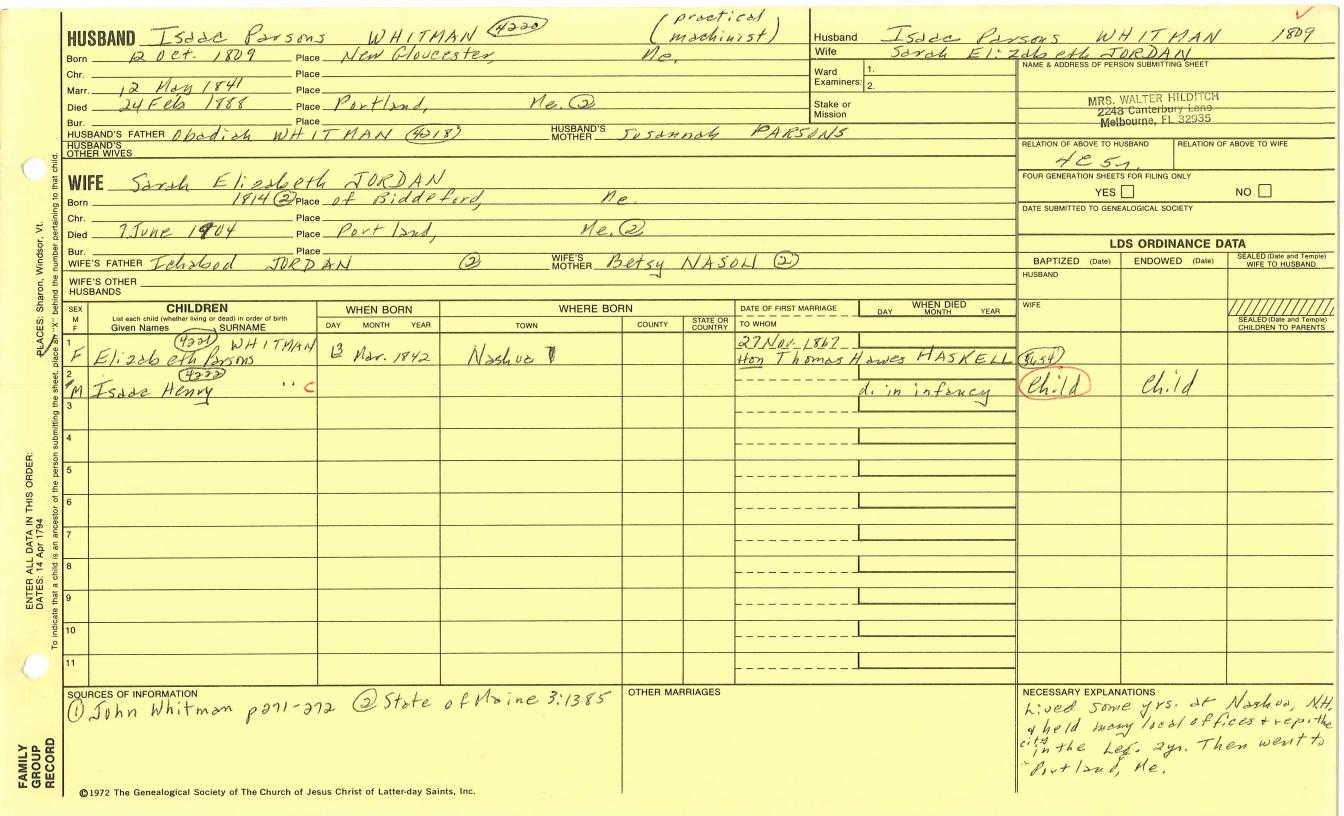 HUSBAND Isaac Parsons WHITMAN 4220 (practical machinist)
Born 12 Oct. 1809 Place New Gloucester, Me.
Chr. Place
Marr. 12 May 1841 Place
Died 24 Feb 1888 Place Portland, Me. 2
Bur. Place
HUSBAND'S FATHER Obadiah WHITMAN (4218) HUSBAND'S MOTHER Susannah PARSONS
HUSBAND'S OTHER WIVES
Husband Isaac Parsons WHITMAN 1809
Wife Sarah Elizabeth JORDAN
Ward Examiners: 1.
2.
Stake or Mission
NAME & ADDRESS OF PERSON SUBMITTING SHEET
MRS. WALTER HILDITCH
2243 Canterbury Lane
Melbourne, FL 32935
RELATION OF ABOVE TO HUSBAND RELATION OF ABOVE TO WIFE
4C5r.
FOUR GENERATION SHEETS FOR FILING ONLY
YES NO
DATE SUBMITTED TO GENEALOGICAL SOCIETY
WIFE Sarah Elizabeth JORDAN
Born 1814 2 Place of Biddeford, Me.
Chr. Place
Died 7 June 1904 Place Portland, Me. 2
Bur. Place
WIFE'S FATHER Ichabod JORDAN 2 WIFE'S MOTHER Betsy NASON 2
WIFE'S OTHER HUSBANDS
LDS ORDINANCE DATA
BAPTIZED (Date) ENDOWED (Date) SEALED (Date and Temple) WIFE TO HUSBAND
HUSBAND
WIFE
SEALED (Date and Temple) CHILDREN TO PARENTS
SEX M F CHILDREN
List each child (whether living or dead) in order of birth
Given Names SURNAME
WHEN BORN DAY MONTH YEAR
WHERE BORN TOWN COUNTY STATE OR COUNTRY
DATE OF FIRST MARRIAGE TO WHOM
WHEN DIED DAY MONTH YEAR
1 4221 WHITMAN 27 Nov. 1867
F Elizabeth Parsons 13 Mar. 1842 Nashua Hon Thomas Hawes HASKELL
2 4222
M Isaac Henry " C d. in infancy Child Child
3
4
5
6
7
8
9
10
11
SOURCES OF INFORMATION
1 John Whitman p271-272 2 State of Maine 3:1385
OTHER MARRIAGES
NECESSARY EXPLANATIONS
Lived some yrs. at Nashua, N.H.
& held many local offices & rep. the
city in the Leg. 2yr. Then went to
Portland, Me.
©1972 The Genealogical Society of The Church of Jesus Christ of Latter-day Saints, Inc.
FAMILY GROUP RECORD
ENTER ALL DATA IN THIS ORDER:
DATES: 14 Apr 1794
PLACES: Sharon, Windsor, Vt.
To indicate that a child is an ancestor of the person submitting the sheet, place an "X" behind the number pertaining to that child.